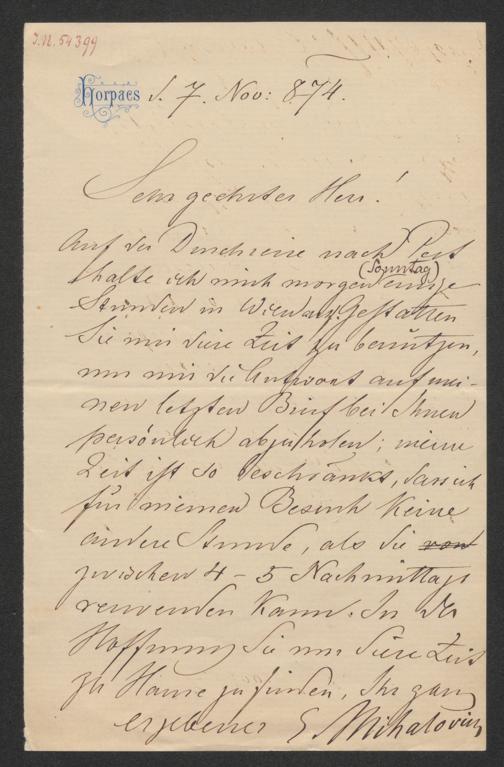 I.N. 54399
Horpacs d. 7. Nov: 874.
Sehr geehrter Herr!
Auf der Durchreise nach Pest
halte ich mich morgen (Sonntag) einige
Stunden in Wien auf. Gestatten
Sie mir diese Zeit zu benützen,
um mir die Antwort auf mei-
nen letzten Brief bei Ihnen
persönlich abzuholen; meine
Zeit ist so beschränkt, dass ich
für meinen Besuch keine
andere Stunde, als die von
zwischen 4 – 5 Nachmittags
verwenden kann. In der
Hoffnung Sie um diese Zeit
zu Hause zu finden, Ihr ganz
ergebener E. Mihalovich